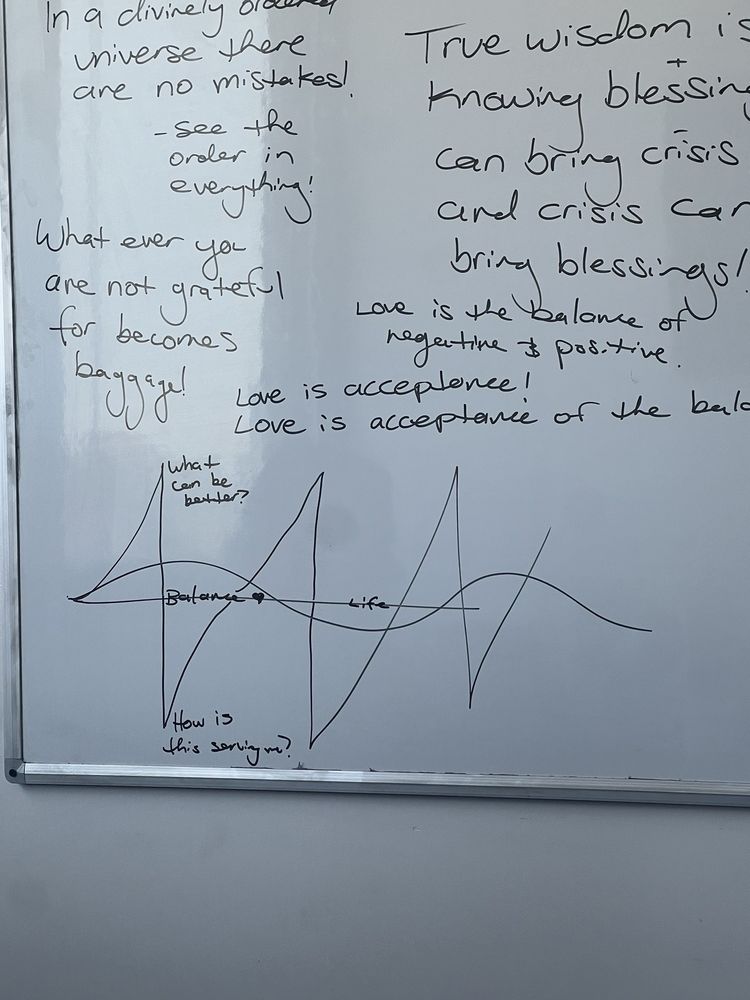 In a divinely ordered
universe there
are no mistakes!
- see the
order in
everything!
What ever you
are not grateful
for becomes
baggage!
True wisdom is
+
knowing blessing
-
can bring crisis
and crisis can
bring blessings!
Love is the balance of
negative & positive.
Love is acceptance!
Love is acceptance of the bala
What
can be
better?
Balance
Life
How is
this serving me?